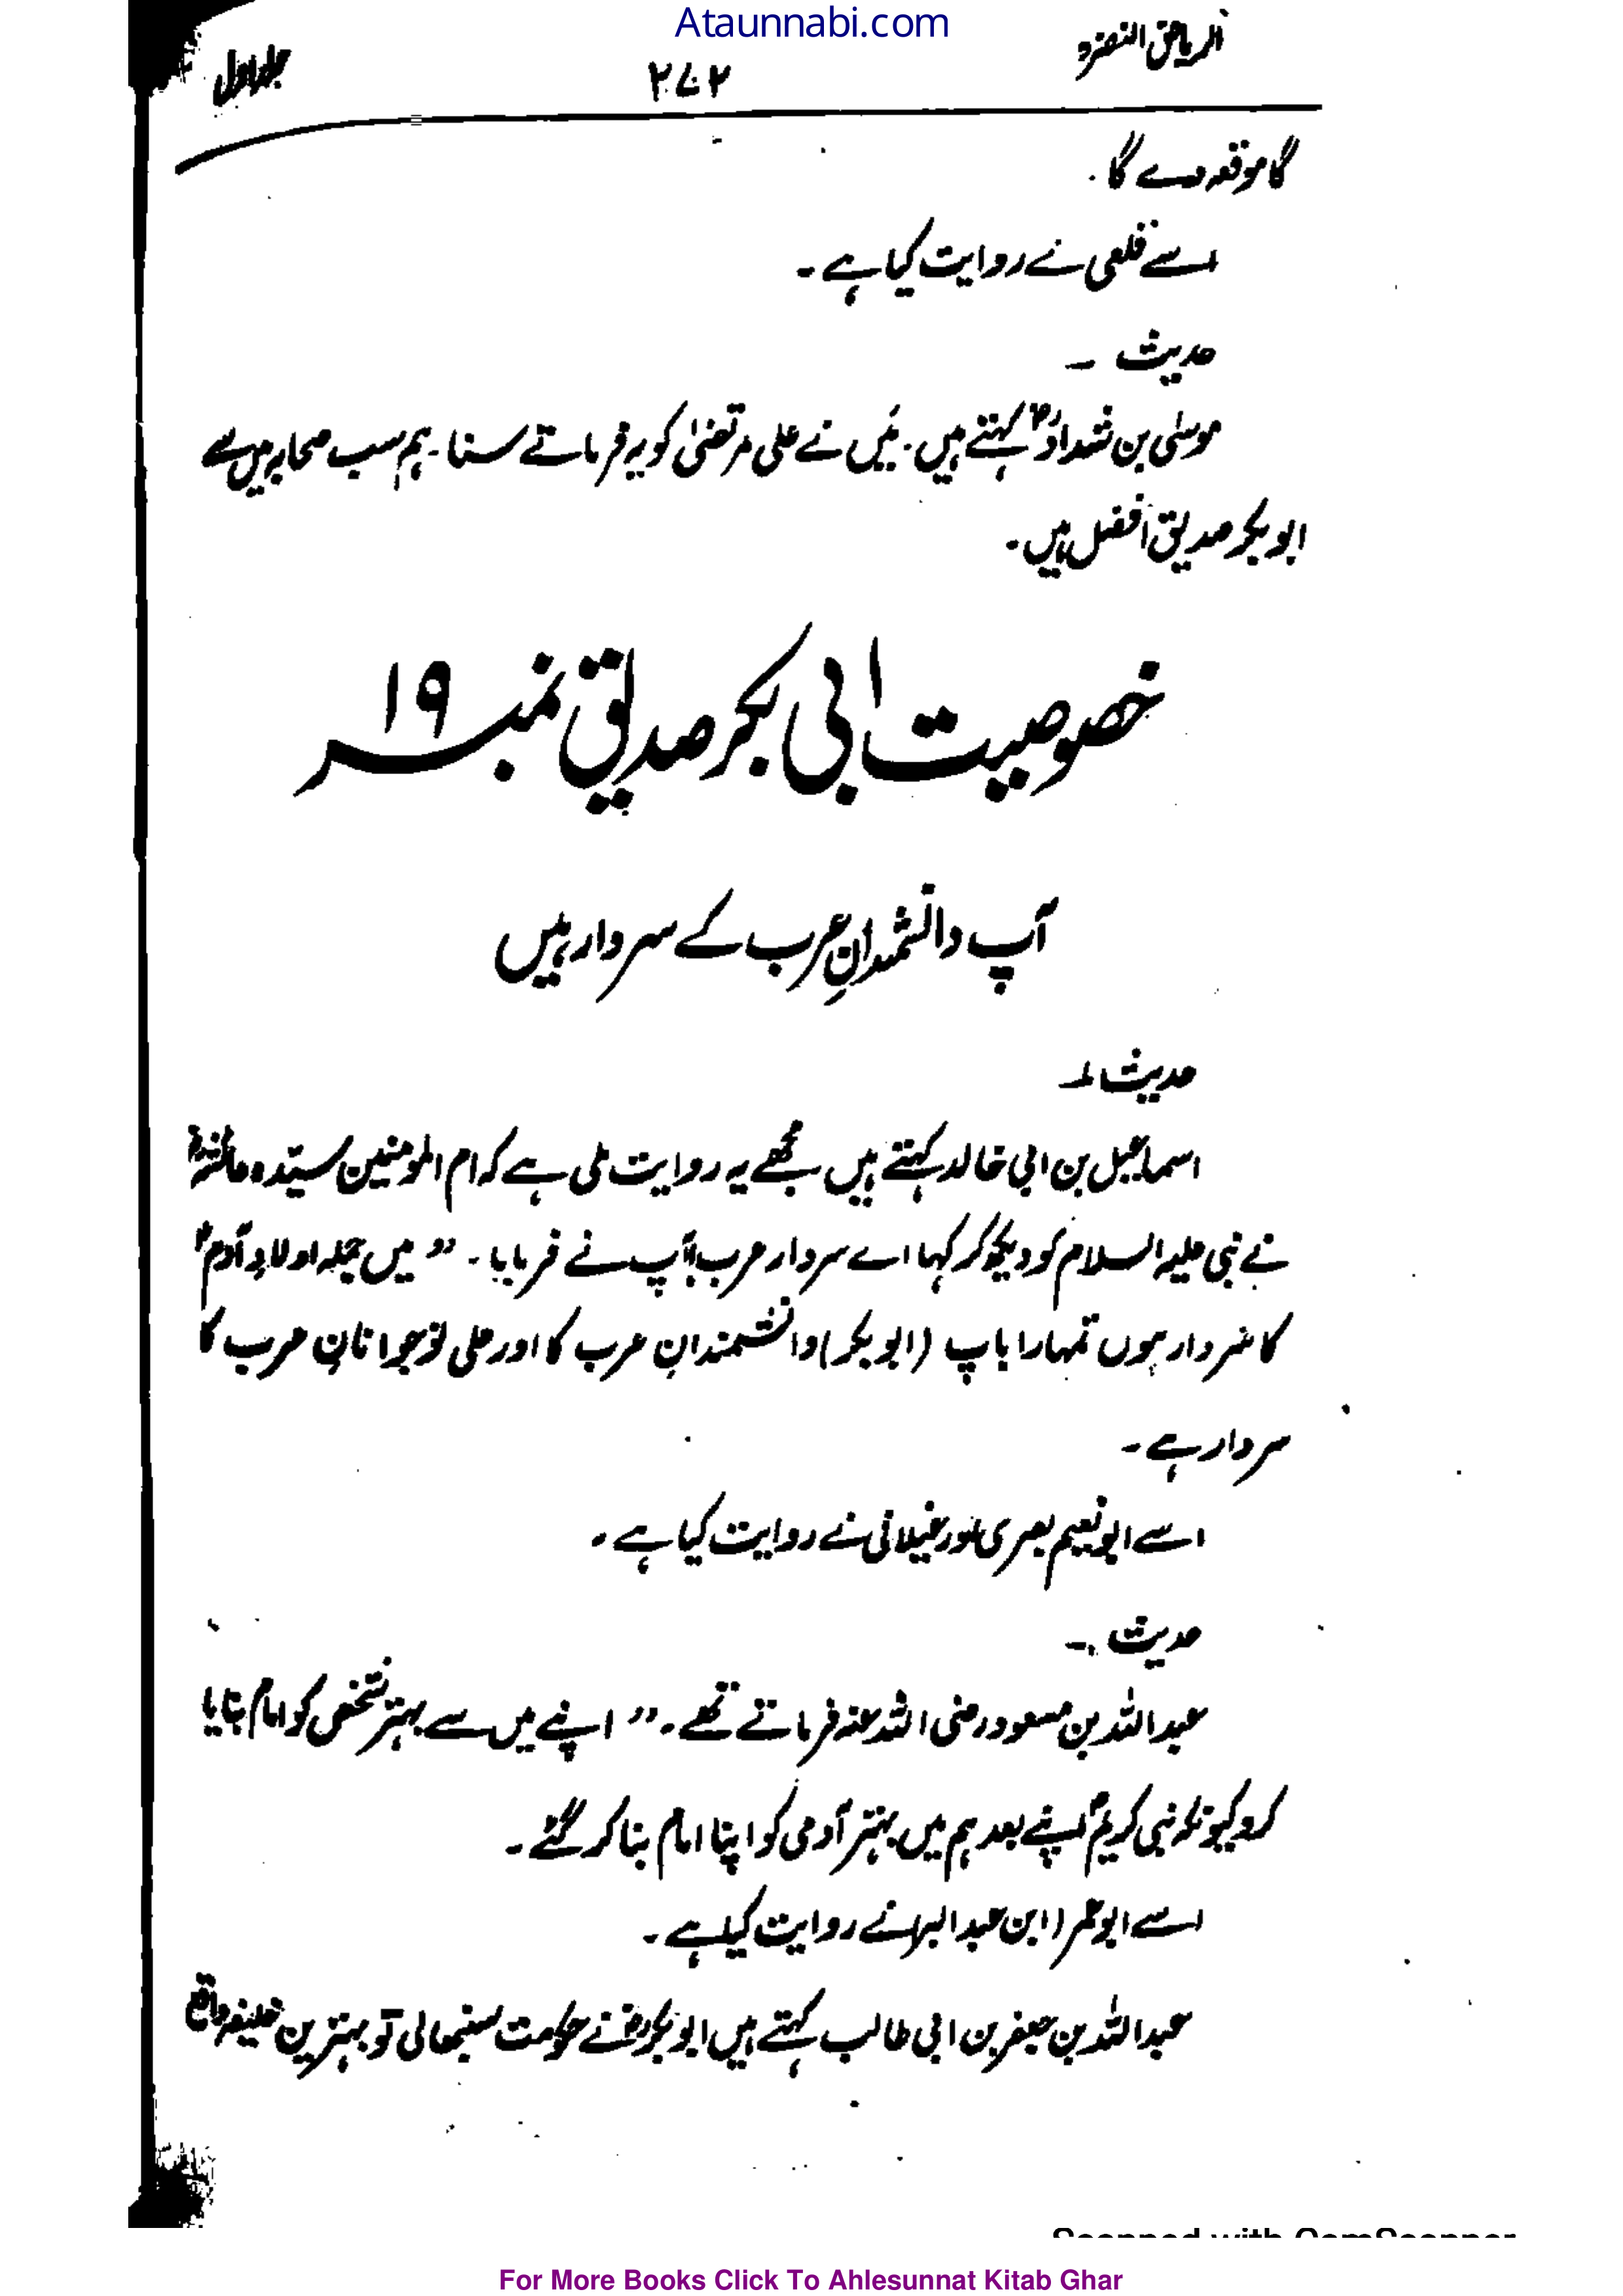 Ataunnabi.com
الریاض النضرہ ۲۷۲ جلد اول
گا موقعہ دے گا۔
اسے قلعی نے روایت کیا ہے۔
حدیث ۔
موسٰی بن شداد رض کہتے ہیں۔ میَں نے علی مرتضیٰ کو یہ فرماتے سنا۔ ہم سب صحابہ میں سے
ابوبکر صدیق افضل ہیں۔
خصوصیت ابی بکر صدیق نمبر ۱۹
آپ دانشمندانِ عرب کے سردار ہیں
حدیث ۱؎
اسماعیل بن ابی خالد کہتے ہیں مجھے یہ روایت ملی ہے کہ ام المومنین سیّدہ عائشہ رض
نے نبی علیہ السلام کو دیکھ کر کہا اے سردار عرب! آپ نے فرمایا۔ ” میں جملہ اولادِ آدمؑ
کا سردار ہوں تمہارا باپ (ابوبکر) دانشمندانِ عرب کا اور علی نوجوانانِ عرب کا
سردار ہے۔
اسے ابونعیم بصری اور غیلانی نے روایت کیا ہے۔
حدیث :۔
عبداللہ بن مسعود رضی اللہ عنہ فرماتے تھے۔ ” اپنے میں سے بہتر شخص کو امام بنایا
کرو کیونکہ نبی کریمؐ اپنے بعد ہم میں بہتر آدمی کو اپنا امام بنا کر گئے۔
اسے ابوعمر (ابن عبدالبر) نے روایت کیا ہے۔
عبداللہ بن جعفر بن ابی طالب کہتے ہیں ابوبکر رض نے حکومت سنبھالی تو بہترین خلیفہ واقع
Scanned with CamScanner
For More Books Click To Ahlesunnat Kitab Ghar